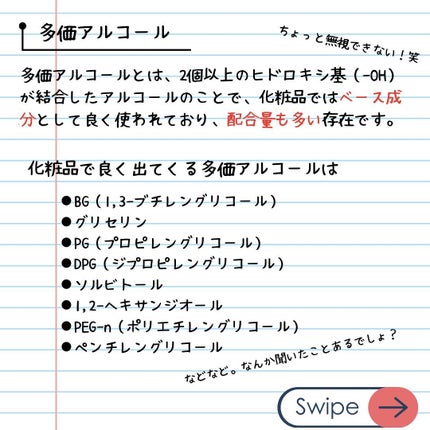 多価アルコール
ちょっと無視できない！笑
多価アルコールとは、2個以上のヒドロキシ基（-OH）
が結合したアルコールのことで、化粧品ではベース成
分として良く使われており、配合量も多い存在です。
化粧品で良く出てくる多価アルコールは
●BG（1,3-ブチレングリコール）
●グリセリン
●PG（プロピレングリコール）
●DPG（ジプロピレングリコール）
●ソルビトール
●1,2-ヘキサンジオール
●PEG-n（ポリエチレングリコール）
●ペンチレングリコール
などなど。なんか聞いたことあるでしょ？
Swipe